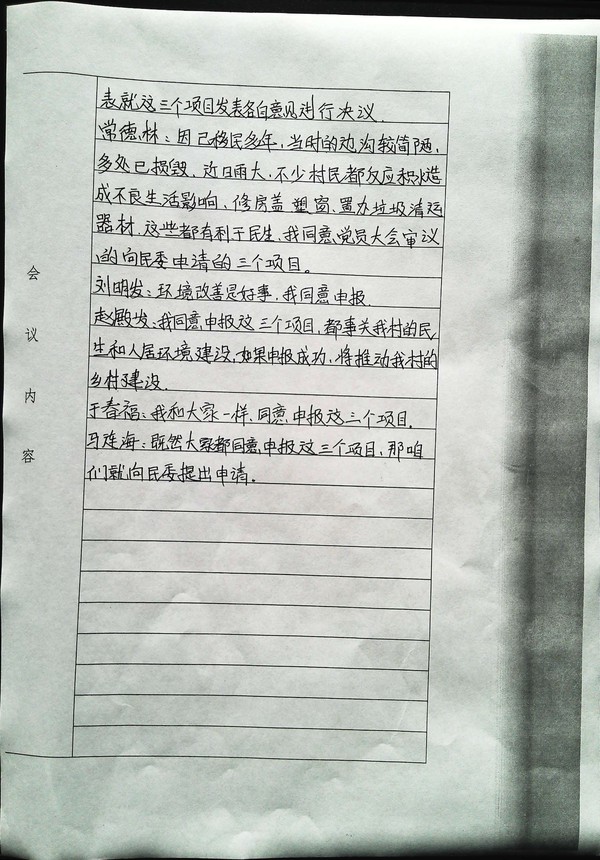 表就这三个项目发表各自意见进行决议.
常德林:因已移民多年,当时的边沟较简陋,
多处已损毁.近日雨大,不少村民都反应积水造
成不良生活影响、修房盖塑窗、置办垃圾清运
器材.这些都有利于民生.我同意党员大会审议
的向民委申请的三个项目。
刘明发:环境改善是好事.我同意申报
赵殿发:我同意申报这三个项目,都事关我村的民
生和人居环境建设.如果申报成功,将推动我村的
乡村建设.
于春福:我和大家一样.同意申报这三个项目.
马连海:既然大家都同意申报这三个项目、那咱
们就向民委提出申请。
会
议
内
容